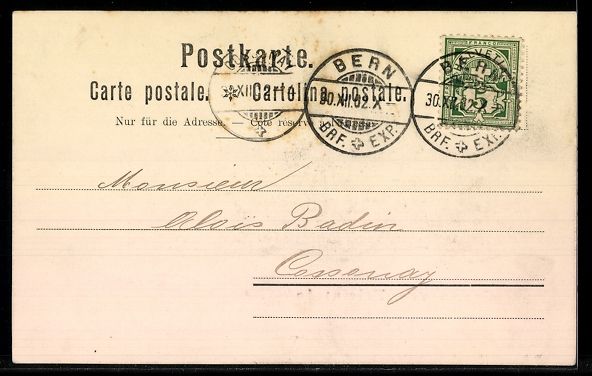 Postkarte.
Carte postale. Cartolina postale.
Nur für die Adresse. Côté réservé à
BERN
30.XII.02.X
BRF. EXP.
FRANCO
BERN
30.XII.02
BRF. EXP.
XII
Monsieur
Aloïs Badin
Cossonay